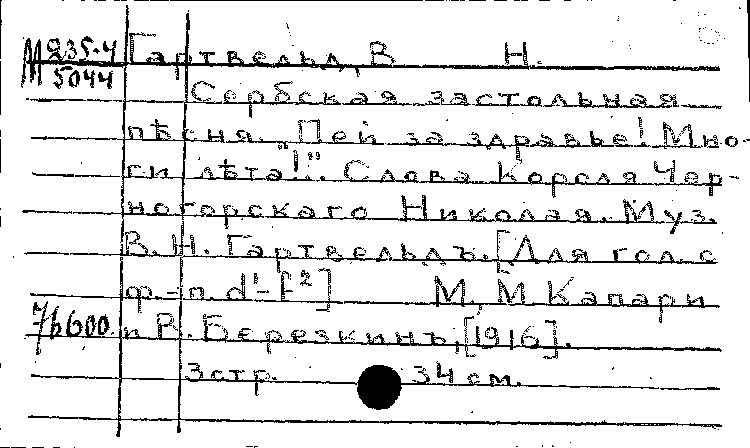 М 235-4
5044
Гартвельд, В Н.
Сербская застольная
пѣсня. „Пей за здравье! Мно-
ги лѣта!". Слава Короля Чер-
ногорскаго Николая. Муз.
В. Н. Гартвельдъ. [Для гол. с
ф.-п. d¹-f²] М, М. Капари
76600 и В. Березкинъ, [1916].
3 стр. 34 см.